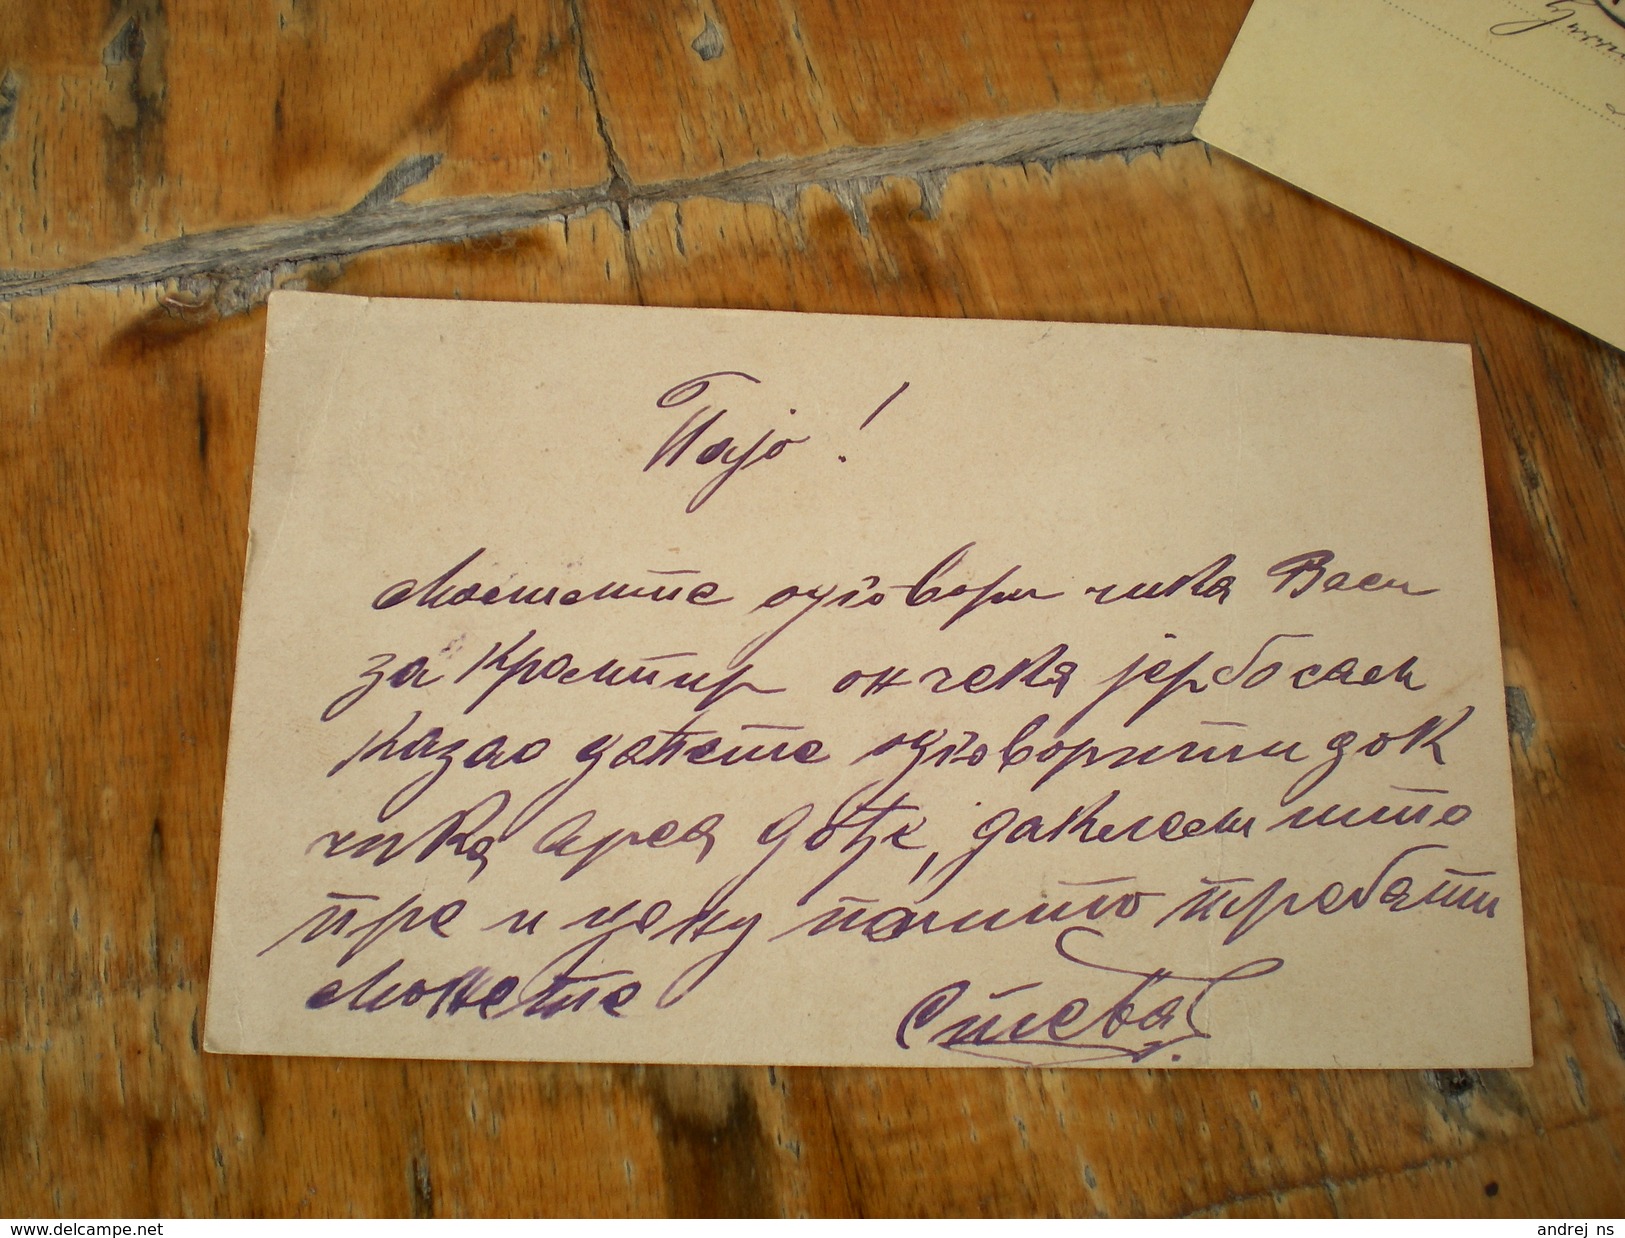 Пајо!
одговори чика Васи
за кромпир он чека јербо сам
казао даћете одговорити док
чика Арса дође, дакле сам што
пре и цену пошто требати
можете
Стева
www.delcampe.net
andrej_ns